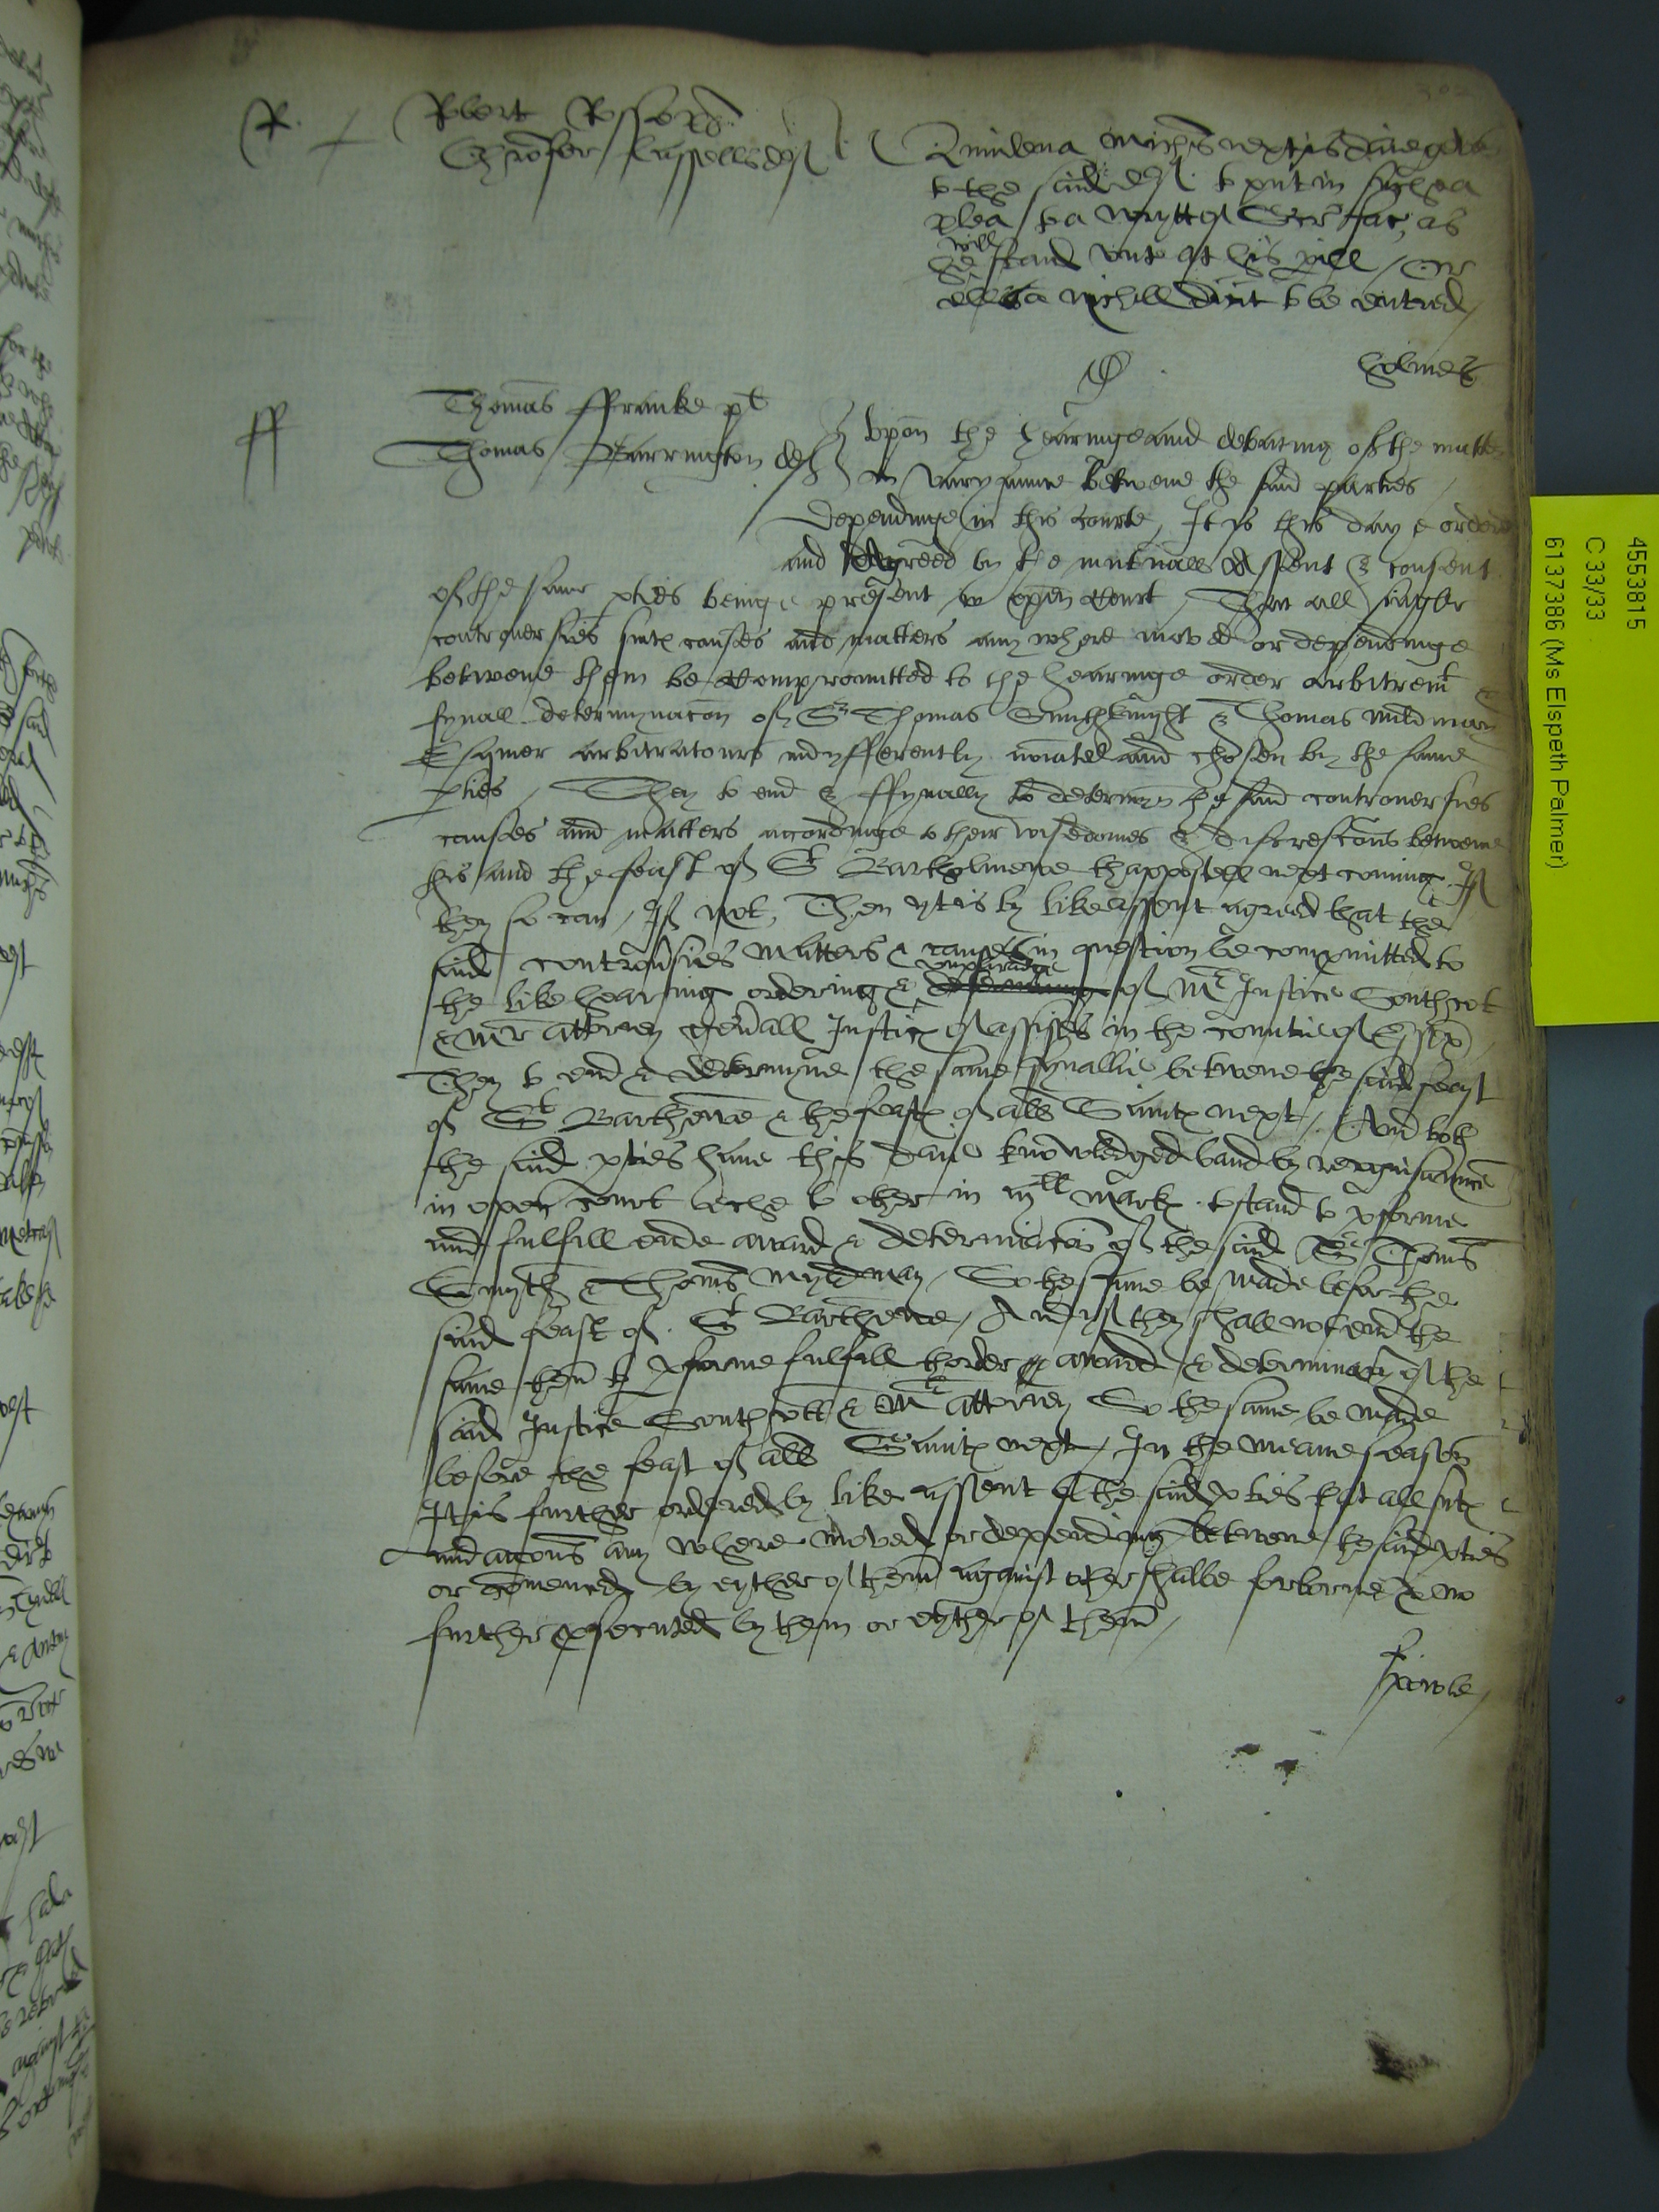 R. Robert Rosse
Chr̃ofer Russell def
Quindena Mich̃is next is daie gyven
to the said def to put in suche a
plea to a wrytt of Scr̃ fac̃ as
he will stand unto at his p̃ill / Or
elles a nichill dic̃it to be entred /
Holmes
ff Thomas ffranke pl̃t
Thomas Barrington def
Upon the hearinge and debating of the matter
in varyaunce betwene the said parties
dependinge in this Courte, It is this daye ordered
and agreed by the mutuall assent & consent
of the same p̃ties beinge present in open Court, That all singler
controversies sutes causes and matters any where moved or dependinge
betwene them be compromitted to the hearinge order arbitremt &
fynall determynac̃on of Sr Thomas Smith knyght & Thomas mildmay
Esquier arbitratours indyfferently no͠iated and chosen by the same
p̃ties / They to end & ffynally to determyn the said controversies
causes and matters accordinge to their wisedomes & discresc̃ons betwene
this and the feast of St Bartholmewe thappostell next coming If
they so can / If not, Then yt is by like assent agreed that the
said controṽsies matters & causes in question be compmitted to
the like hearing ordering & umpiradge of Mr Justice Southcot
& Mr Attorney gen̄all Justic̃ of assises in the countie of Essex
They to end & determyne the same fynallie betwene the said feast
of St Barthewe & the feast of all Saintes next / And both
the said p̃ties have this daie knowledged band by recognisaunce
in open court eche to other in mll mark to stand to p̃forme
and fulfill ende award & determinac̃on of the said Sr Thom̃s
Smyth & Thom̃s Myldmay / So the same be made before the
said feast of St Barthewe / And yf they shall not end the
same then to p̃forme fulfill thorder award & determinac̃on of the
said Justice Southcott & Mr Attorney So the same be made
before the feast of all Saintes next / In the meane season
It is further ordered by like assent of the said p̃ties that all sutes
and acc̃ons any where moved or depending betwene the said p̃ties
or com̃enced by eyther of them against other shalbe forborne & no
further p̃secuted by them or eyther of them /
Powle
4553815
C 33/33
6137386 (Ms Elspeth Palmer)